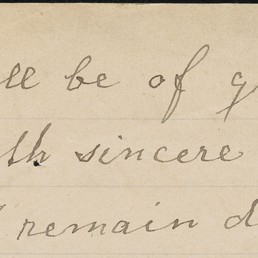 ll be of g
th sincere
I remain d